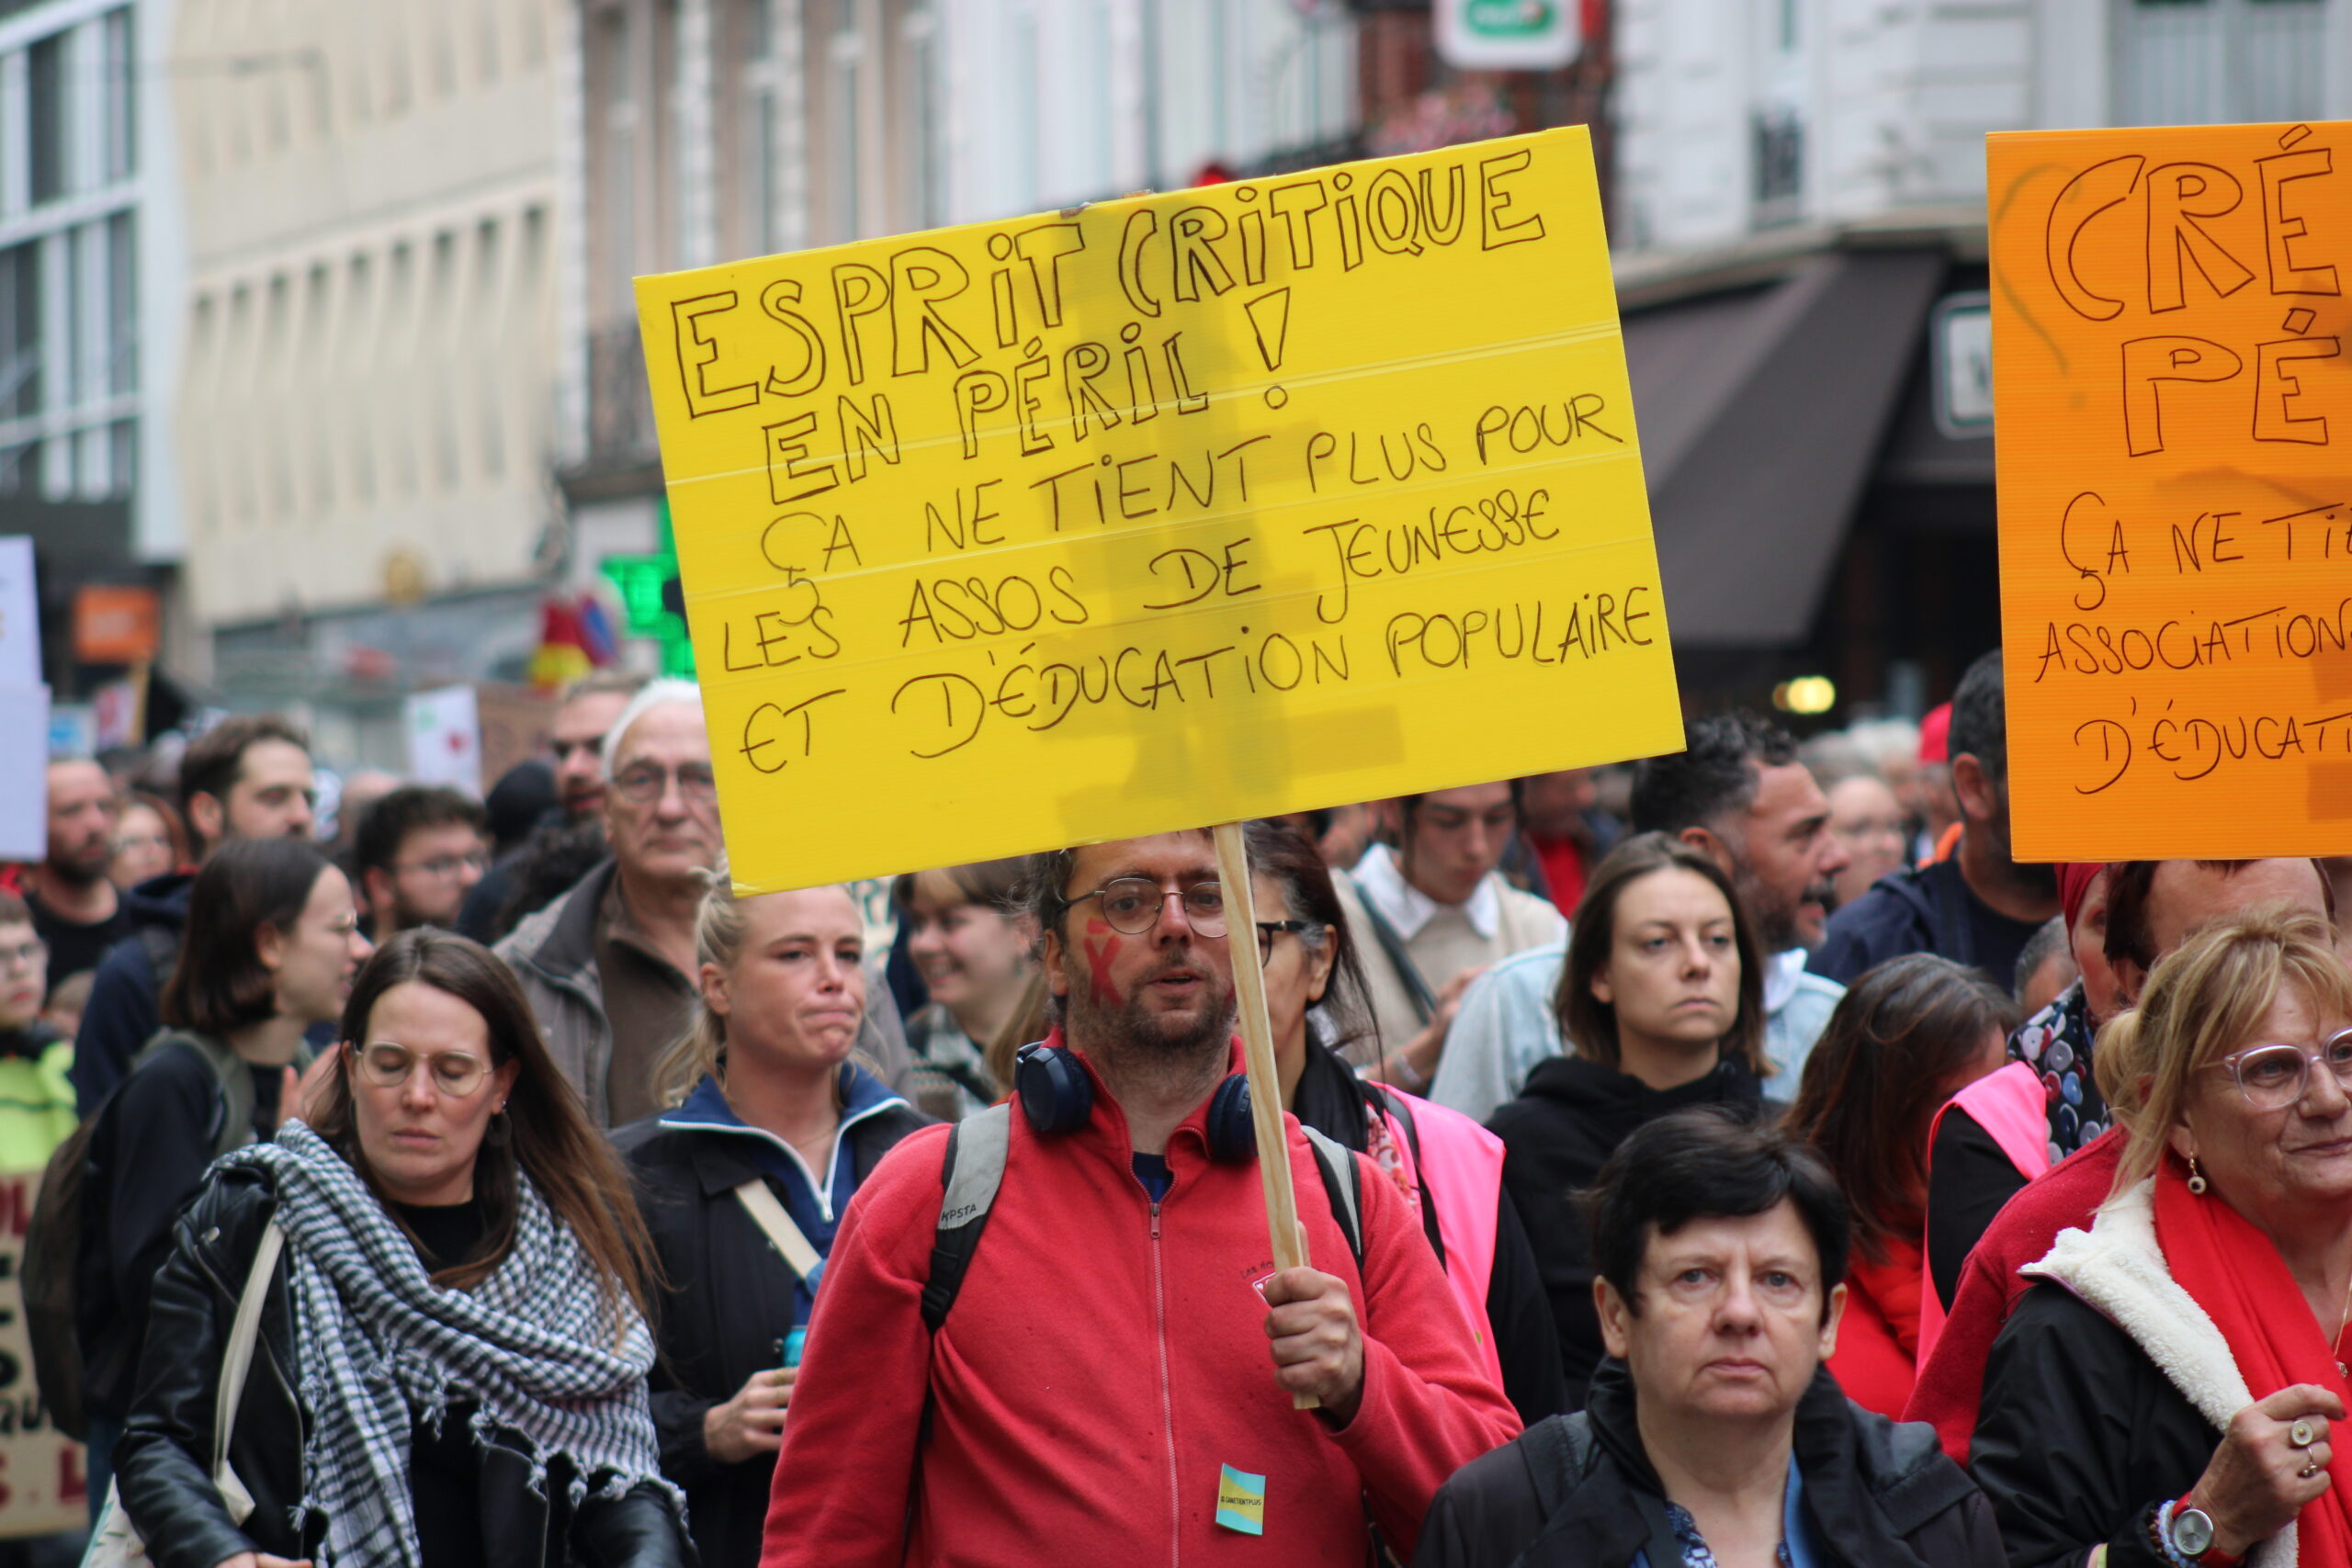 ESPRiT CRiTiQUE
EN PÉRiL !
ÇA NE TiENT PLUS POUR
LES ASSOS DE JEUNESSE
ET D'ÉDUCATiON POPULAiRE
CRÉ
PÉ
ÇA NE Ti
ASSOCiATiON
D'ÉDUCATi
KPSTA